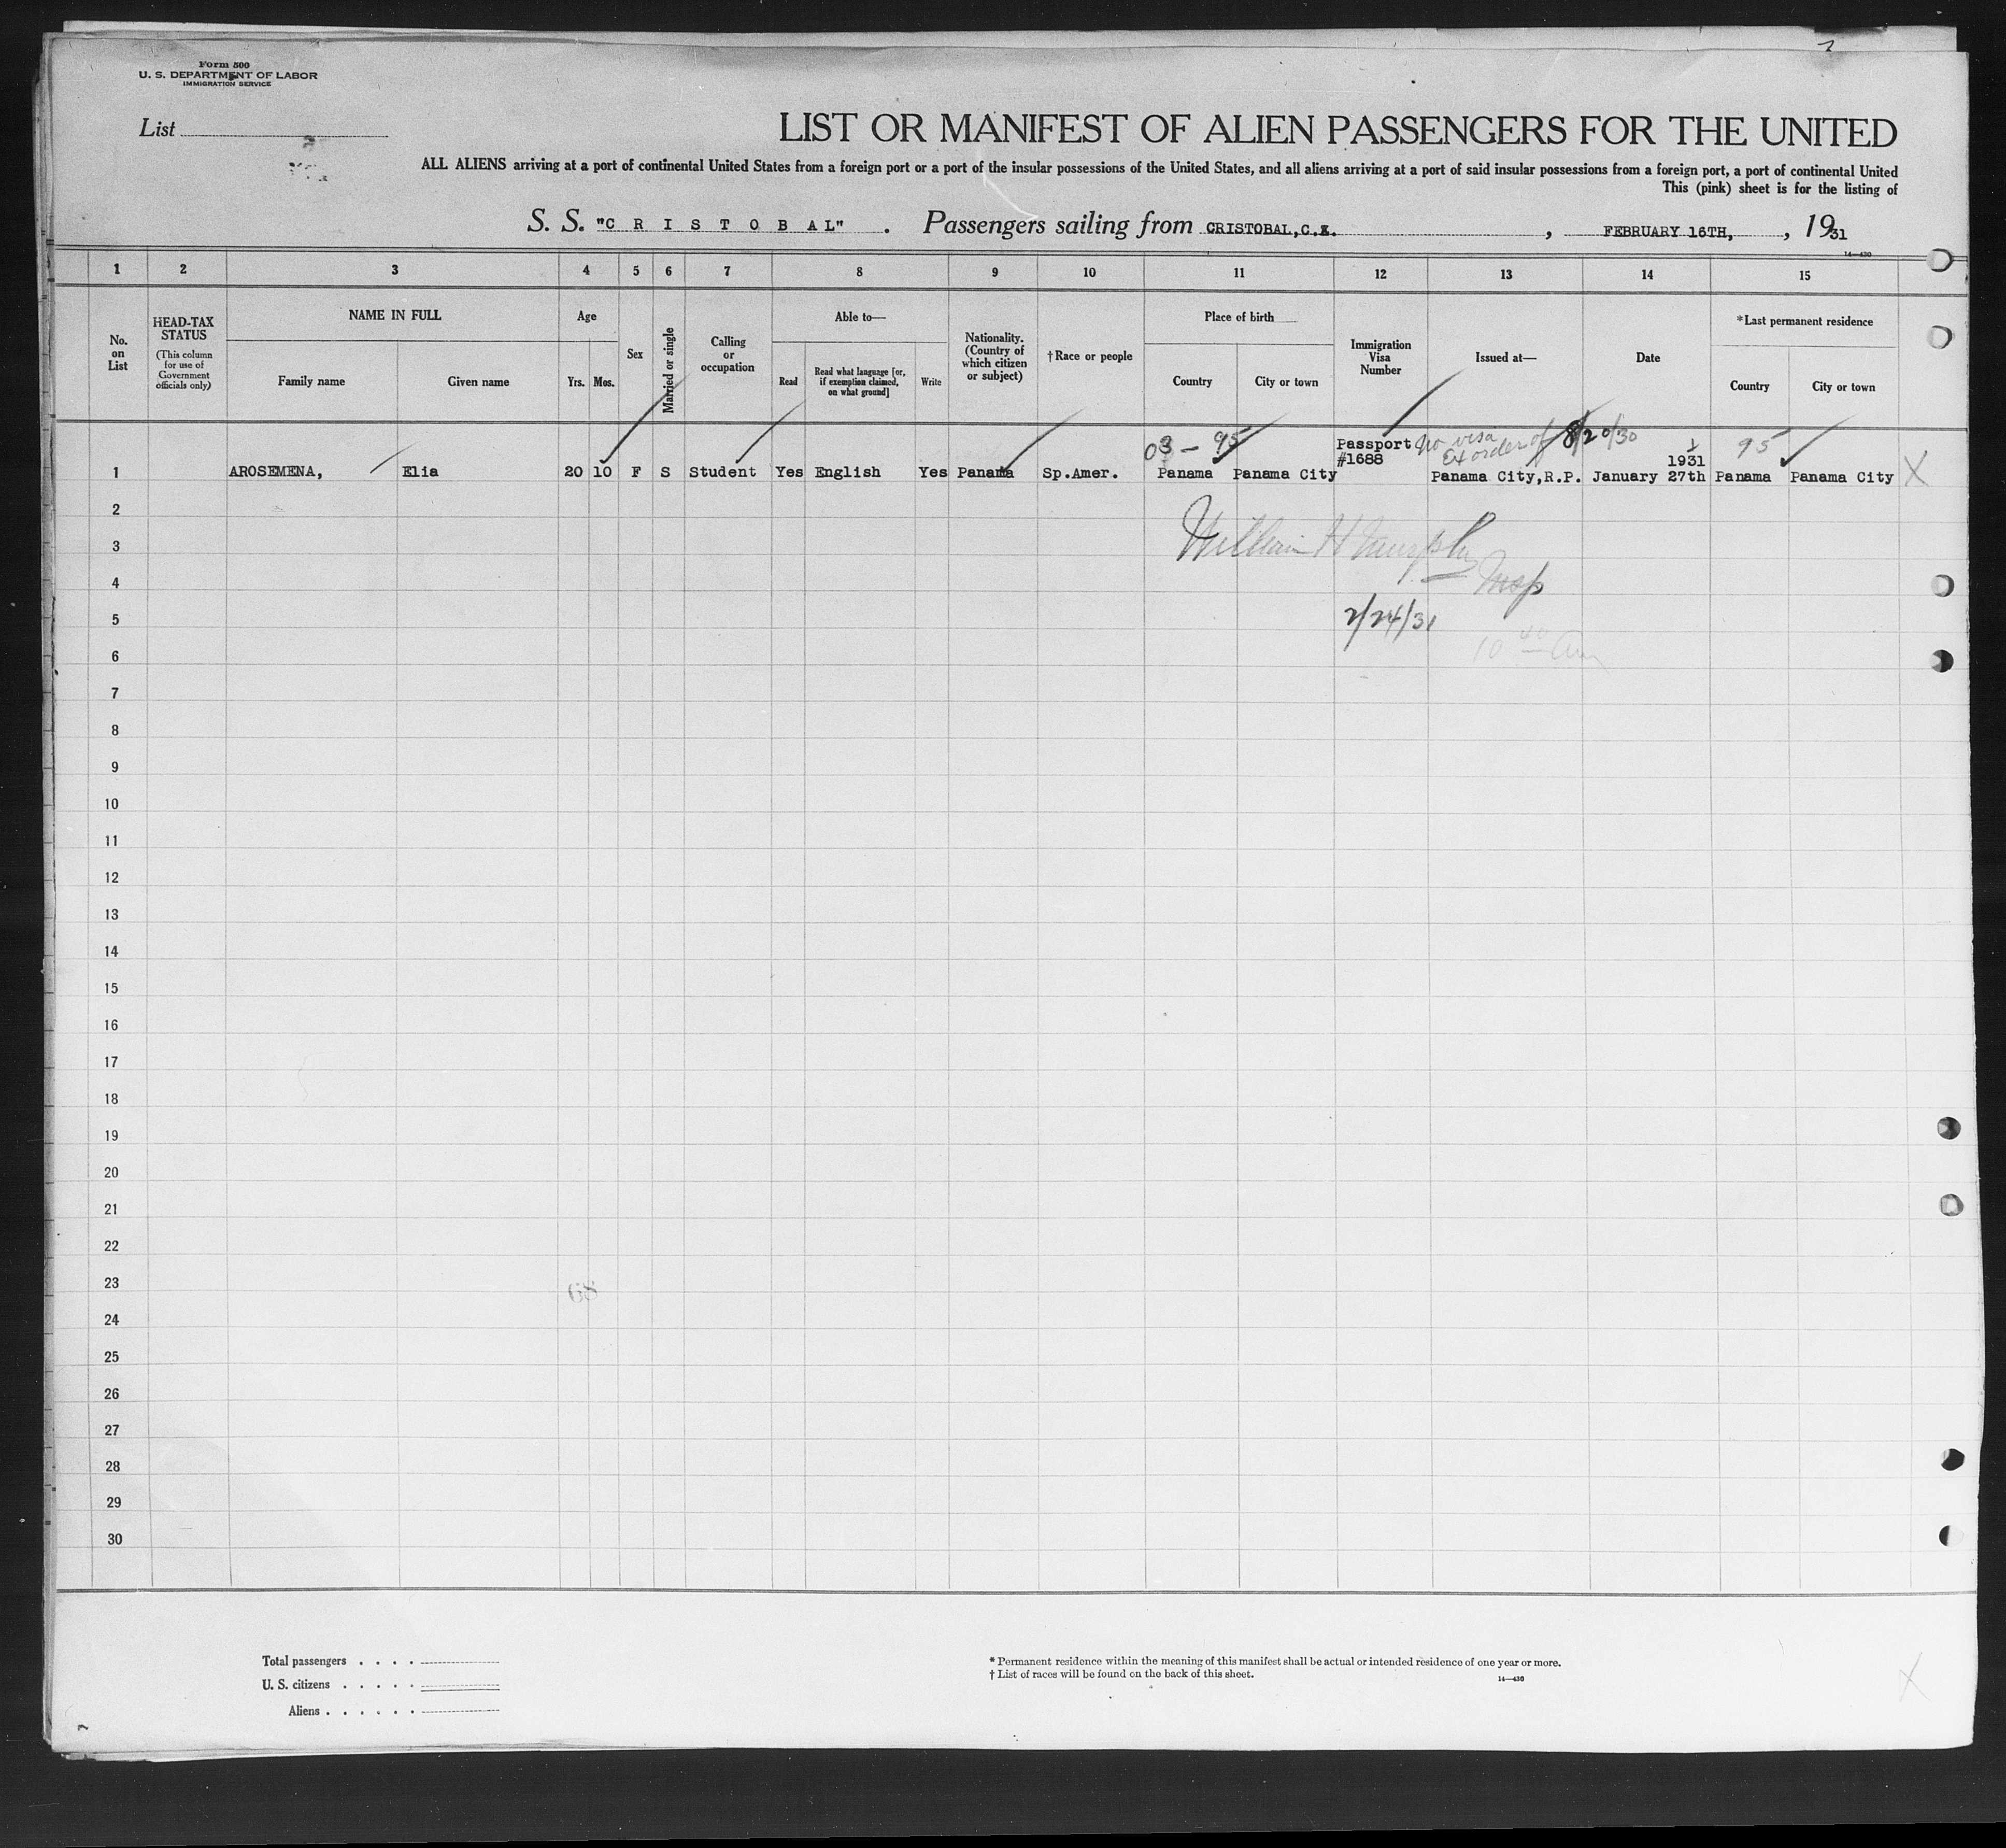 Form 500
U. S. DEPARTMENT OF LABOR
IMMIGRATION SERVICE
List
LIST OR MANIFEST OF ALIEN PASSENGERS FOR THE UNITED
ALL ALIENS arriving at a port of continental United States from a foreign port or a port of the insular possessions of the United States, and all aliens arriving at a port of said insular possessions from a foreign port, a port of continental United
This (pink) sheet is for the listing of
S. S. "C R I S T O B A L" . Passengers sailing from CRISTOBAL,C.Z. , FEBRUARY 16TH, , 1931
14—430
1 2 3 4 5 6 7 8 9 10 11 12 13 14 15
No. on List
HEAD-TAX STATUS
(This column for use of Government officials only)
NAME IN FULL
Family name Given name
Age
Yrs. Mos.
Sex
Married or single
Calling or occupation
Able to—
Read
Read what language [or, if exemption claimed, on what ground]
Write
Nationality. (Country of which citizen or subject)
†Race or people
Place of birth
Country City or town
Immigration Visa Number
Issued at—
Date
*Last permanent residence
Country City or town
03 - 95 Passport No visa Ex order of 8/20/30 95
#1688 1931
1 AROSEMENA, Elia 20 10 F S Student Yes English Yes Panama Sp.Amer. Panama Panama City Panama City,R.P. January 27th Panama Panama City X
2
William H Murphy
3
4
Insp
5
2/24/31
6
10 40 am
7
8
9
10
11
12
13
14
15
16
17
18
19
20
21
22
23
68
24
25
26
27
28
29
30
Total passengers . . . .
U. S. citizens . . . . .
Aliens . . . . . .
* Permanent residence within the meaning of this manifest shall be actual or intended residence of one year or more.
† List of races will be found on the back of this sheet.
14—430
X